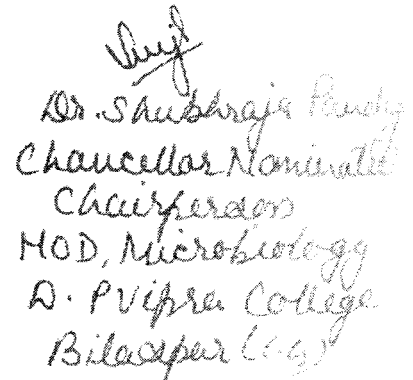 Dr. Shubhraja Pandy
Chancellor Nominated
Chairperson
HOD, Microbiology
D. P Vipra College
Bilaspur (C.G)